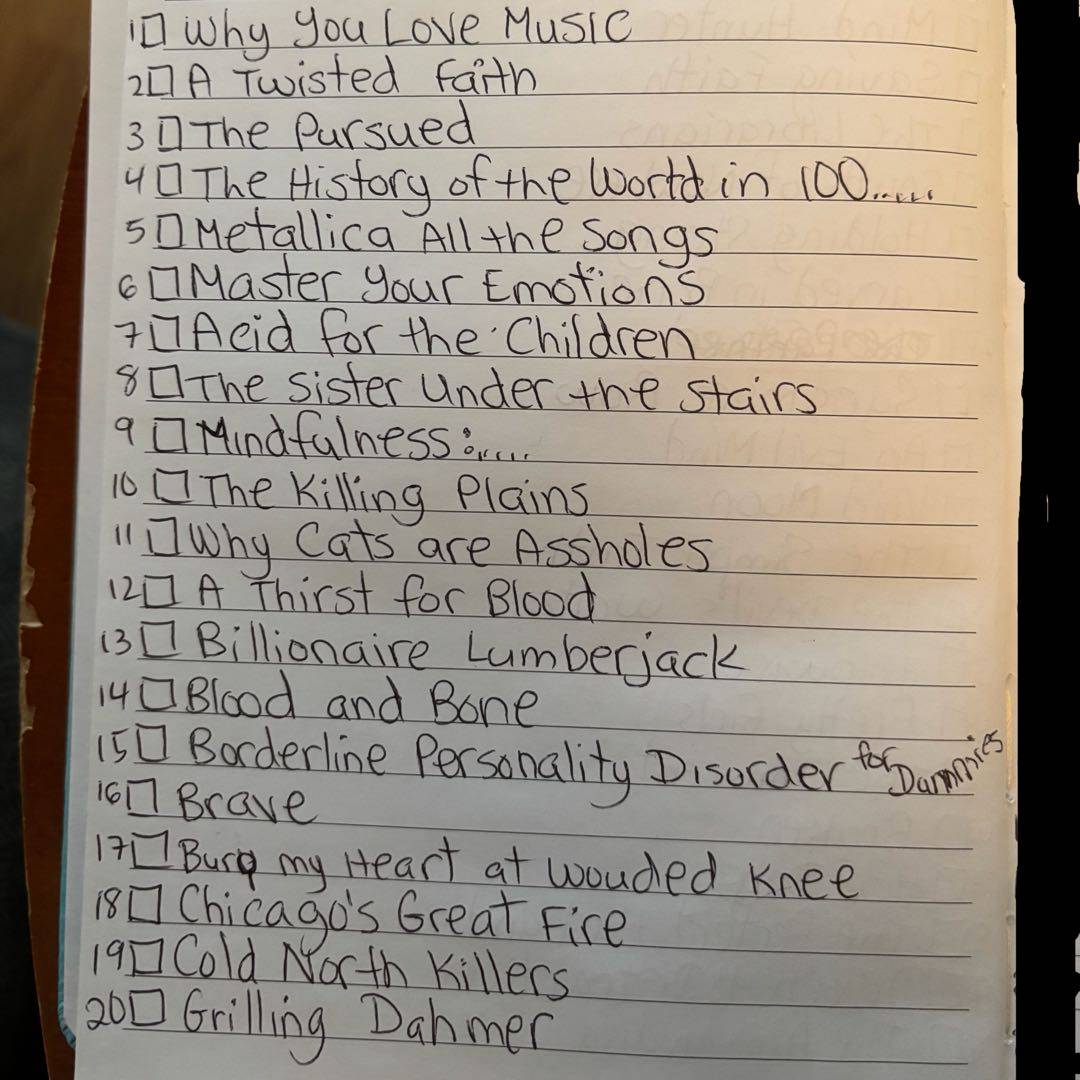 1 Why You Love Music
2 A Twisted Faith
3 The Pursued
4 The History of the World in 100.....
5 Metallica All the Songs
6 Master your Emotions
7 Acid for the Children
8 The Sister Under the Stairs
9 Mindfulness:.....
10 The Killing Plains
11 Why Cats are Assholes
12 A Thirst for Blood
13 Billionaire Lumberjack
14 Blood and Bone
15 Borderline Personality Disorder for Dummies
16 Brave
17 Bury my Heart at Wouded Knee
18 Chicago's Great Fire
19 Cold North Killers
20 Grilling Dahmer